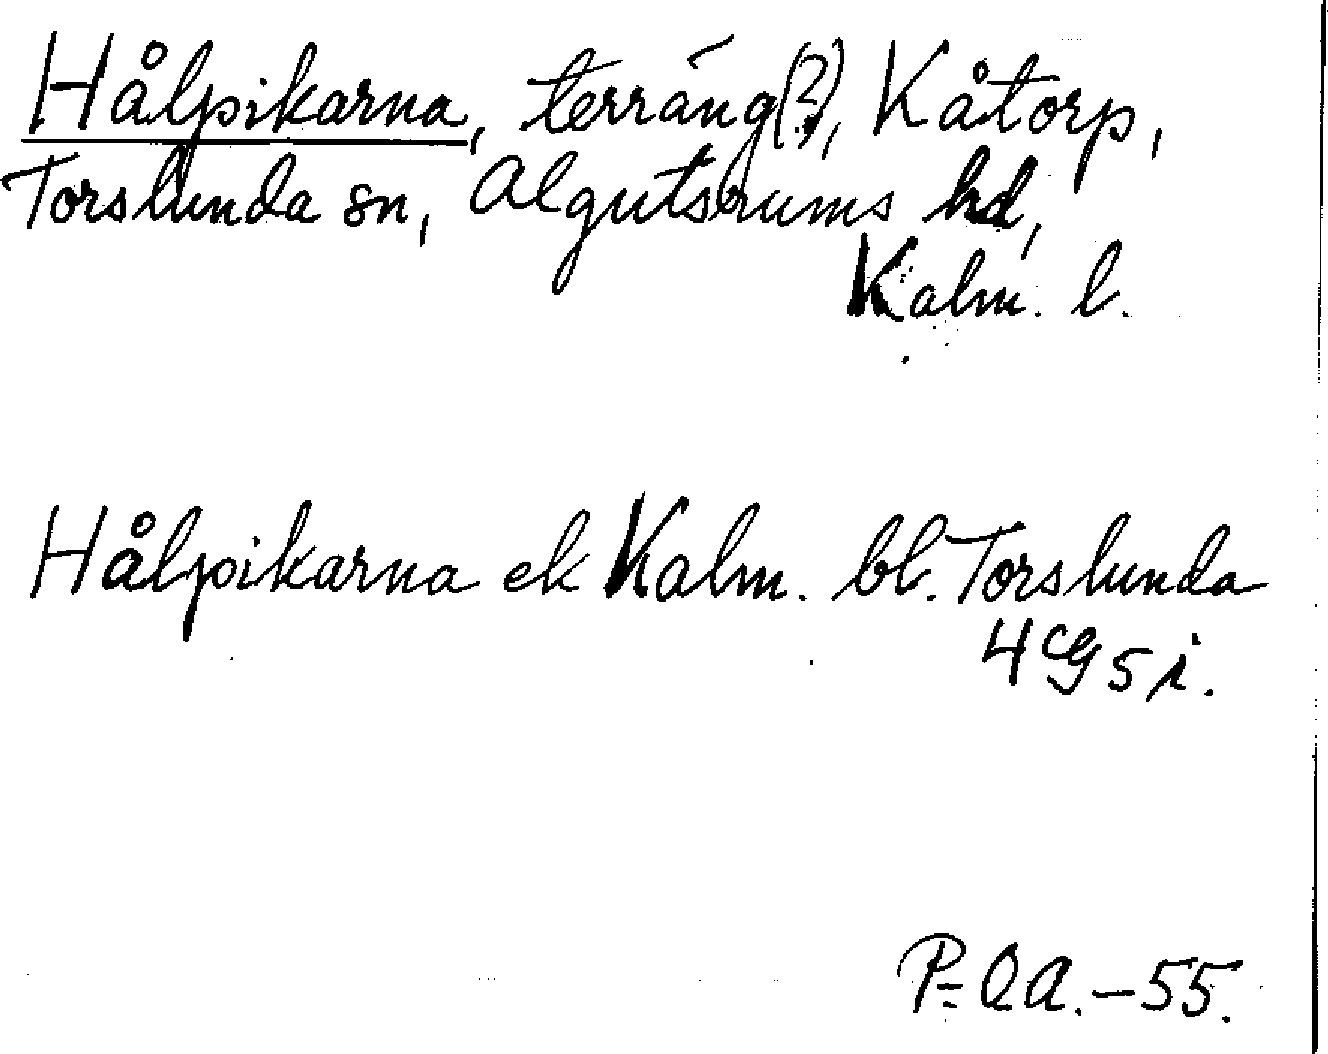 Hålpikarna, terräng(?), Kåtorp,
Torslunda sn, Algutsrums hd,
Kalm. l.
Hålpikarna ek Kalm. bl. Torslunda
4 G 5 i.
P=Q A. - 55.